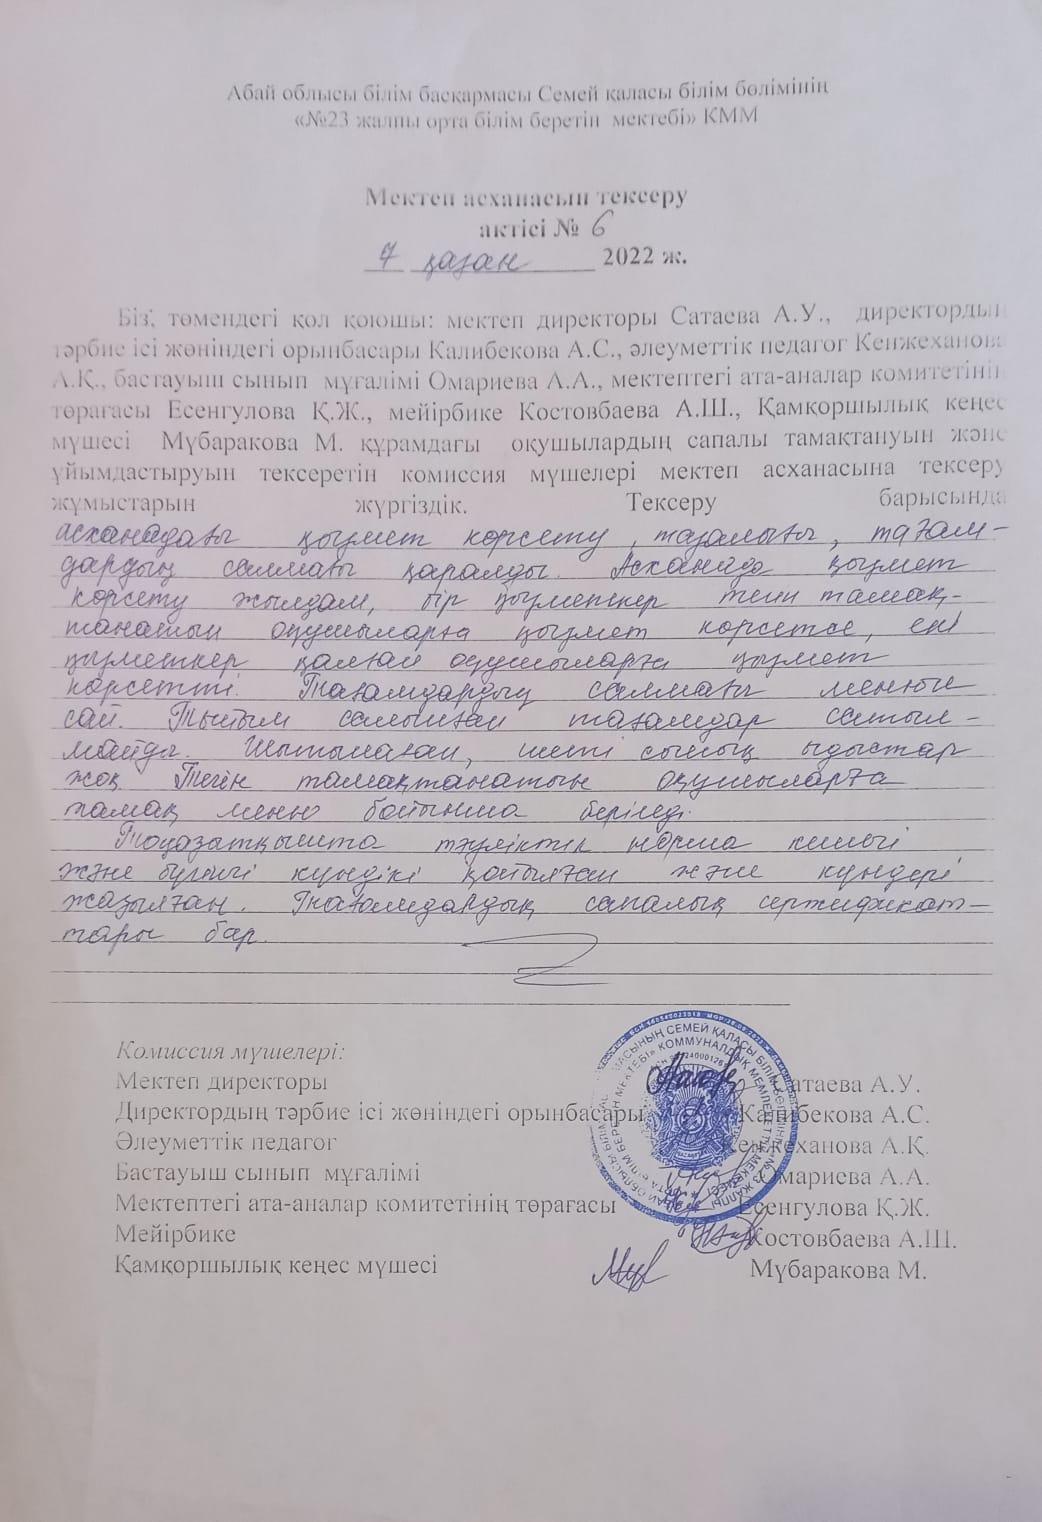 Абай облысы білім басқармасы Семей қаласы білім бөлімінің
«№23 жалпы орта білім беретін мектебі» КММ
Мектеп асханасын тексеру
актісі № 6
7 қазан 2022 ж.
Біз, төмендегі қол қоюшы: мектеп директоры Сатаева А.У., директордың
тәрбие ісі жөніндегі орынбасары Калибекова А.С., әлеуметтік педагог Кенжеханова
А.Қ., бастауыш сынып мұғалімі Омариева А.А., мектептегі ата-аналар комитетінің
төрағасы Есенгулова Қ.Ж., мейірбике Костовбаева А.Ш., Қамқоршылық кеңес
мүшесі Мүбаракова М. құрамдағы оқушылардың сапалы тамақтануын және
ұйымдастыруын тексеретін комиссия мүшелері мектеп асханасына тексеру
жұмыстарын жүргіздік. Тексеру барысында
асханадағы қызмет көрсету, тазалығы, тағам-
дардың салмағы қаралды. Асханада қызмет
көрсету жылдам, бір қызметкер тегін тамақ-
танатын оқушыларға қызмет көрсетсе, екі
қызметкер қалған оқушыларға қызмет
көрсетті. Тағамдардың салмағы менюге
сай. Тыйым салынған тағамдар сатыл-
майды. Шытынаған, шеті сынық ыдыстар
жоқ. Тегін тамақтанатын оқушыларға
тамақ меню бойынша беріледі.
Тоңазатқышта тәуліктік норма кешегі
және бүгінгі күндікі қойылған және күндері
жазылған. Тағамдардың сапалық сертификат-
тары бар.
Комиссия мүшелері:
Мектеп директоры Сатаева А.У.
Директордың тәрбие ісі жөніндегі орынбасары Калибекова А.С.
Әлеуметтік педагог Кенжеханова А.Қ.
Бастауыш сынып мұғалімі Омариева А.А.
Мектептегі ата-аналар комитетінің төрағасы Есенгулова Қ.Ж.
Мейірбике Костовбаева А.Ш.
Қамқоршылық кеңес мүшесі Мүбаракова М.